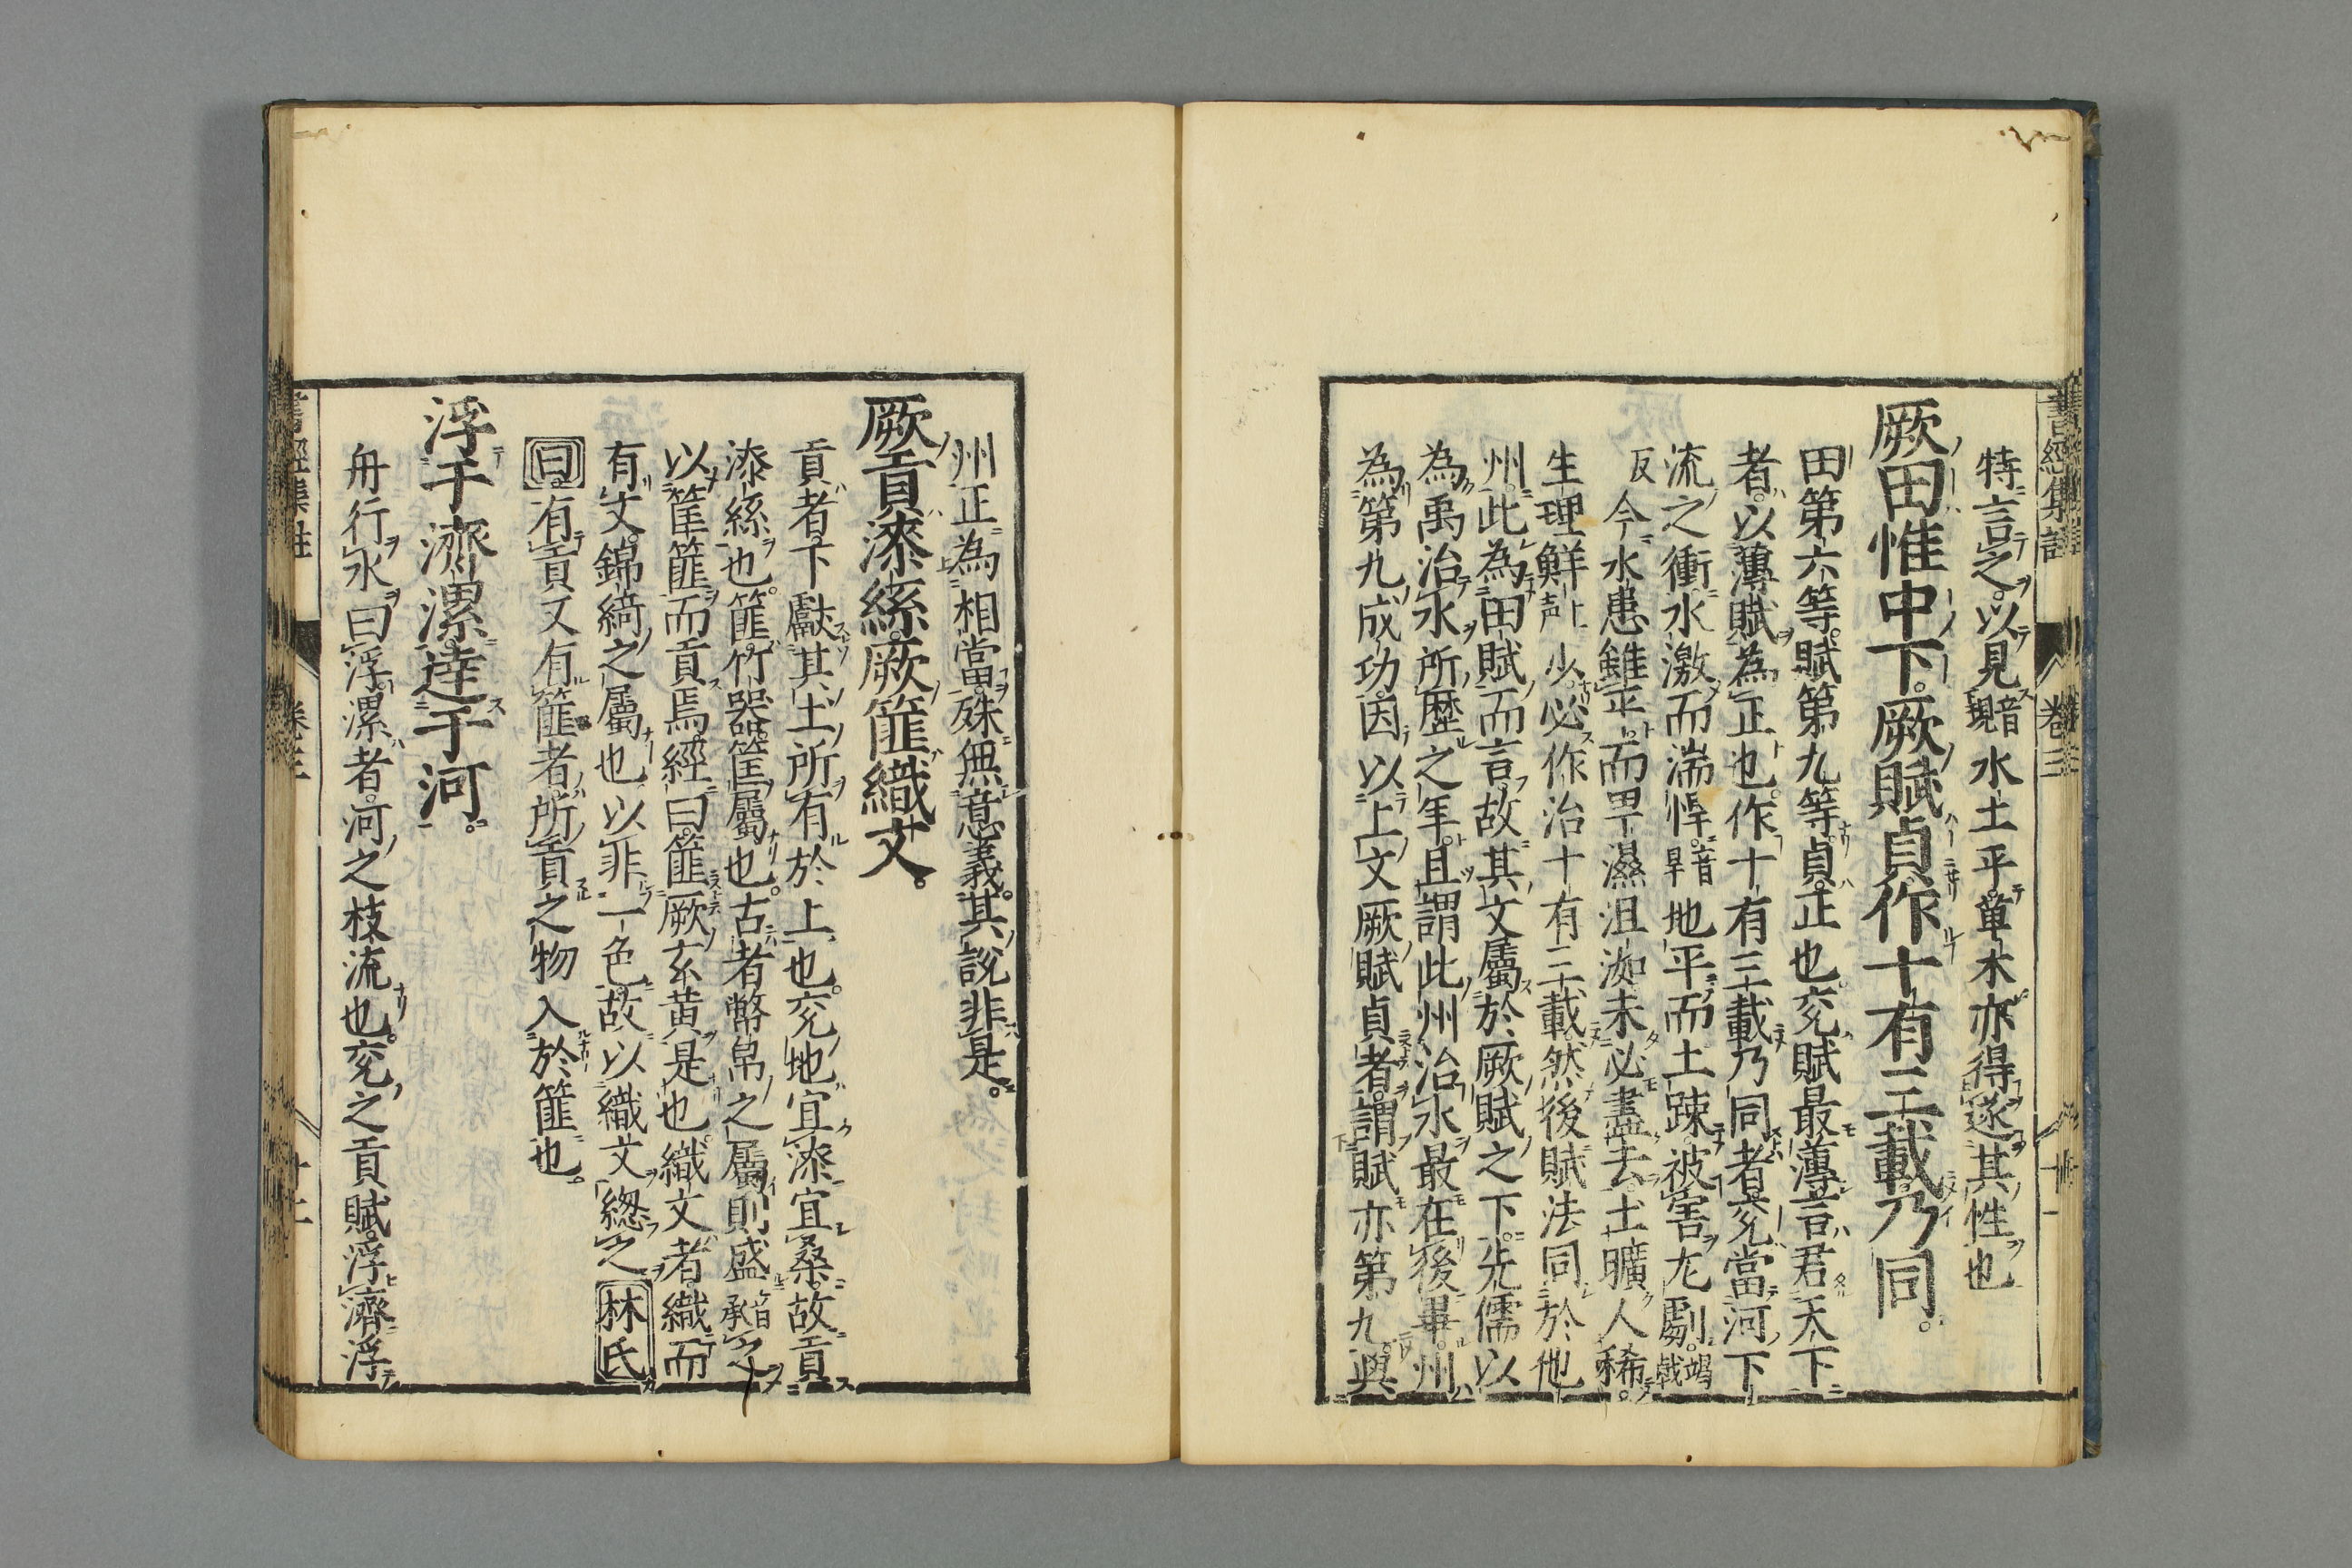 特言之以見音現水土平草木亦得遂其性也
厥田惟中下。厥賦貞作十有三載乃同。
田第六等。賦第九等。貞正也。兗賦最薄。言君天下
者。以薄賦為正也。作十有三載乃同者。兗當河下
流之衝。水激而湍悍。音旱地平而土疎。被害尤劇。竭戟
反今水患雖平。而卑濕沮洳未必盡去。土曠人稀。
生理鮮上声少。必作治十有三載。然後賦法同於他
州。此為田賦而言。故其文屬於厥賦之下。先儒以
為禹治水所歷之年。且謂此州治水最在後畢。州
為第九成功。因以上文厥賦貞者。謂賦亦第九。與
州正為相當。殊無意義。其説非是。
厥貢漆絲。厥篚織文。
貢者。下獻其土所有於上也。兗地宜漆宜桑。故貢
漆絲也。篚。竹器。筐屬也。古者幣帛之屬。則盛音承之
以筐篚而貢焉。經曰。篚厥玄黄是也。織文者。織而
有文。錦綺之屬也。以非一色。故以織文總之。林氏
曰。有貢又有篚者。所貢之物入於篚也。
浮于濟漯。達于河。
舟行水曰浮。漯者。河之枝流也。兗之貢賦。浮濟浮
書經集註
卷三